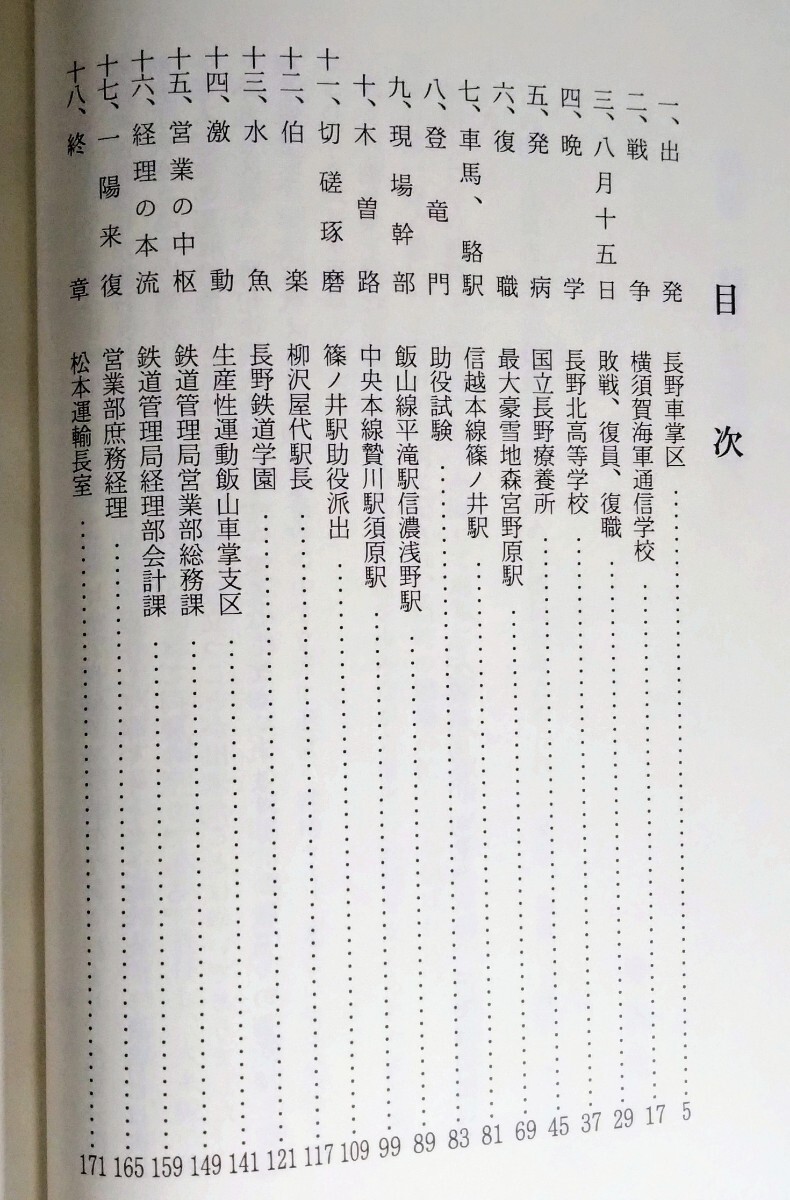 目次
一、出発 長野車掌区 5
二、戦争 横須賀海軍通信学校 17
三、八月十五日 敗戦、復員、復職 29
四、晩学 長野北高等学校 37
五、発病 国立長野療養所 45
六、復職 最大豪雪地森宮野原駅 69
七、車馬、駱駅 信越本線篠ノ井駅 81
八、登竜門 助役試験 83
九、現場幹部 飯山線平滝駅信濃浅野駅 89
十、木曽路 中央本線贄川駅須原駅 99
十一、切磋琢磨 篠ノ井駅助役派出 109
十二、伯楽 柳沢屋代駅長 117
十三、水魚 長野鉄道学園 121
十四、激動 生産性運動飯山車掌支区 141
十五、営業の中枢 鉄道管理局営業部総務課 149
十六、経理の本流 鉄道管理局経理部会計課 159
十七、一陽来復 営業部庶務経理 165
十八、終章 松本運輸長室 171